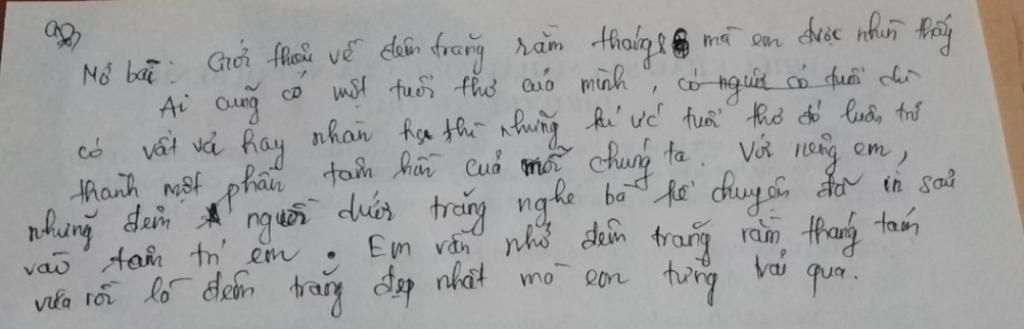 Mở bài: Giới thiệu về đêm trăng rằm tháng 8 mà em được nhìn thấy
Ai cũng có một tuổi thơ của mình, có người có tuổi dù
có vất vả hay nhàn hạ thì những kí ức tuổi thơ đó luôn trở
thành một phần tâm hồn của mỗi chúng ta. Với riêng em,
những đêm ngồi dưới trăng nghe bà kể chuyện đã in sâu
vào tâm trí em. Em vẫn nhớ đêm trăng rằm tháng tám
vừa rồi là đêm trăng đẹp nhất mà em từng trải qua.